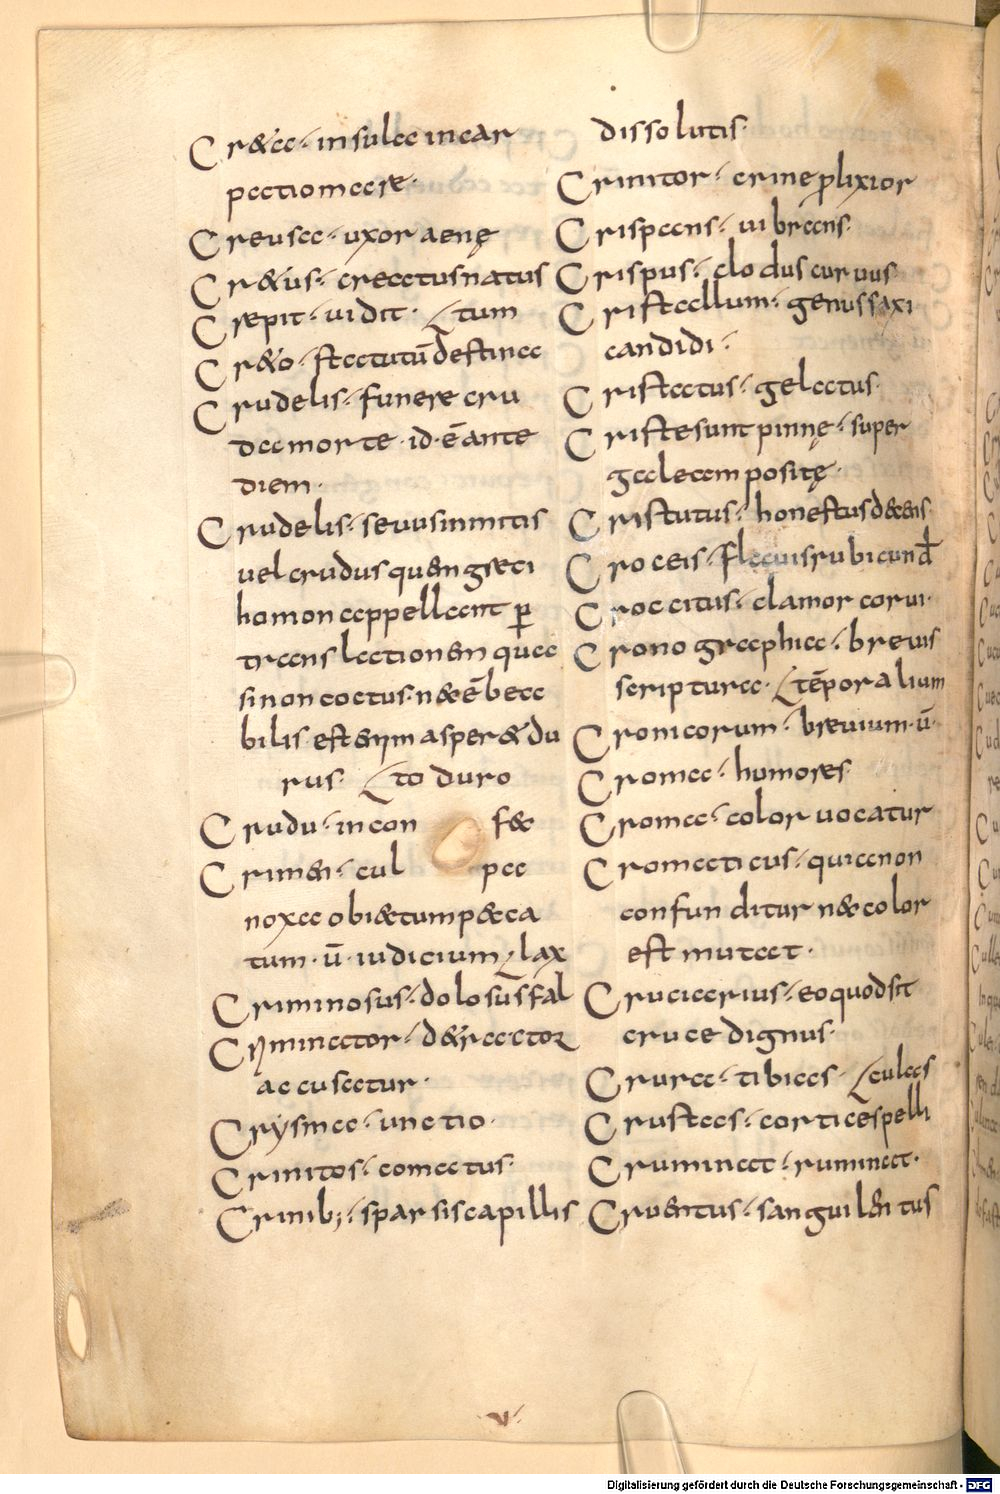 Cr&a· insula incar
pectiomare·
Creusa· uxor aenę
Cr&us· creatusnatus
Crepit· uidit· tum
Cr&o· statutū destina
Crudelis· funere cru
da morte· id· ē ante
diem·
Crudelis· seuusinmitis
uel crudus quem greci
homon appellant ꝑ
translationem quae
sinon coctus· n& ēbeca
bilis· est enim asper & du
rus· to duro
Crudu· incon f&
Crimen· cul pa
noxa obi&tum p&ca
tum· ū· iudicium lax
Criminosus· dolosus fal
Criminator· d&ractor
accusatur·
Crysma· unctio·
Crinitos· comatus·
Crinib;· sparsis capillis
dissolutis·
Crinitor· crine prolixior
Crispans· uibrans·
Crispus· clodus curuus
Cristallum· genus saxi
candidi·
Cristatus· galeatus·
Criste sunt pinnę· super
galeam positę·
Cristutus· honestus decens·
Croceis· flauis rubicund
Crocitus· clamor corui·
Cronographia· breuis
scripturae· tēporalium
Cronicorum· breuium· ū·
Croma· humores·
Croma· color uocatur
Cromaticus· quia non
confunditur n& color
est mutat·
Cruciarius· eo quod sit
cruce dignus·
Crura· tibias· culas
Crustas· cortices pelli
Cruminat· ruminat·
Cruentus· sanguilentus
Digitalisierung gefördert durch die Deutsche Forschungsgemeinschaft - DFG